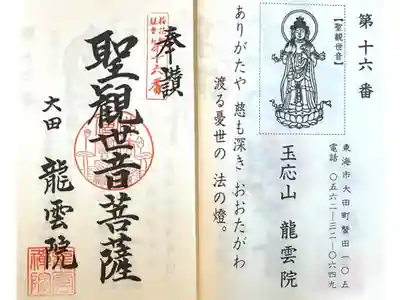 第十六番
【聖観世音】
玉応山 龍雲院
東海市大田町蟹田一〇五
電話 〇五六二―三二―〇六四九
ありがたや 慈も深き おおたがわ
渡る憂世の 法の燈。
奉讃
十六番
聖観世音菩薩
大田 龍雲院